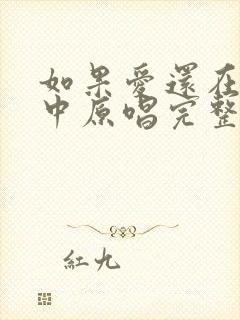 如果愛還在
中原唱完整
紅九